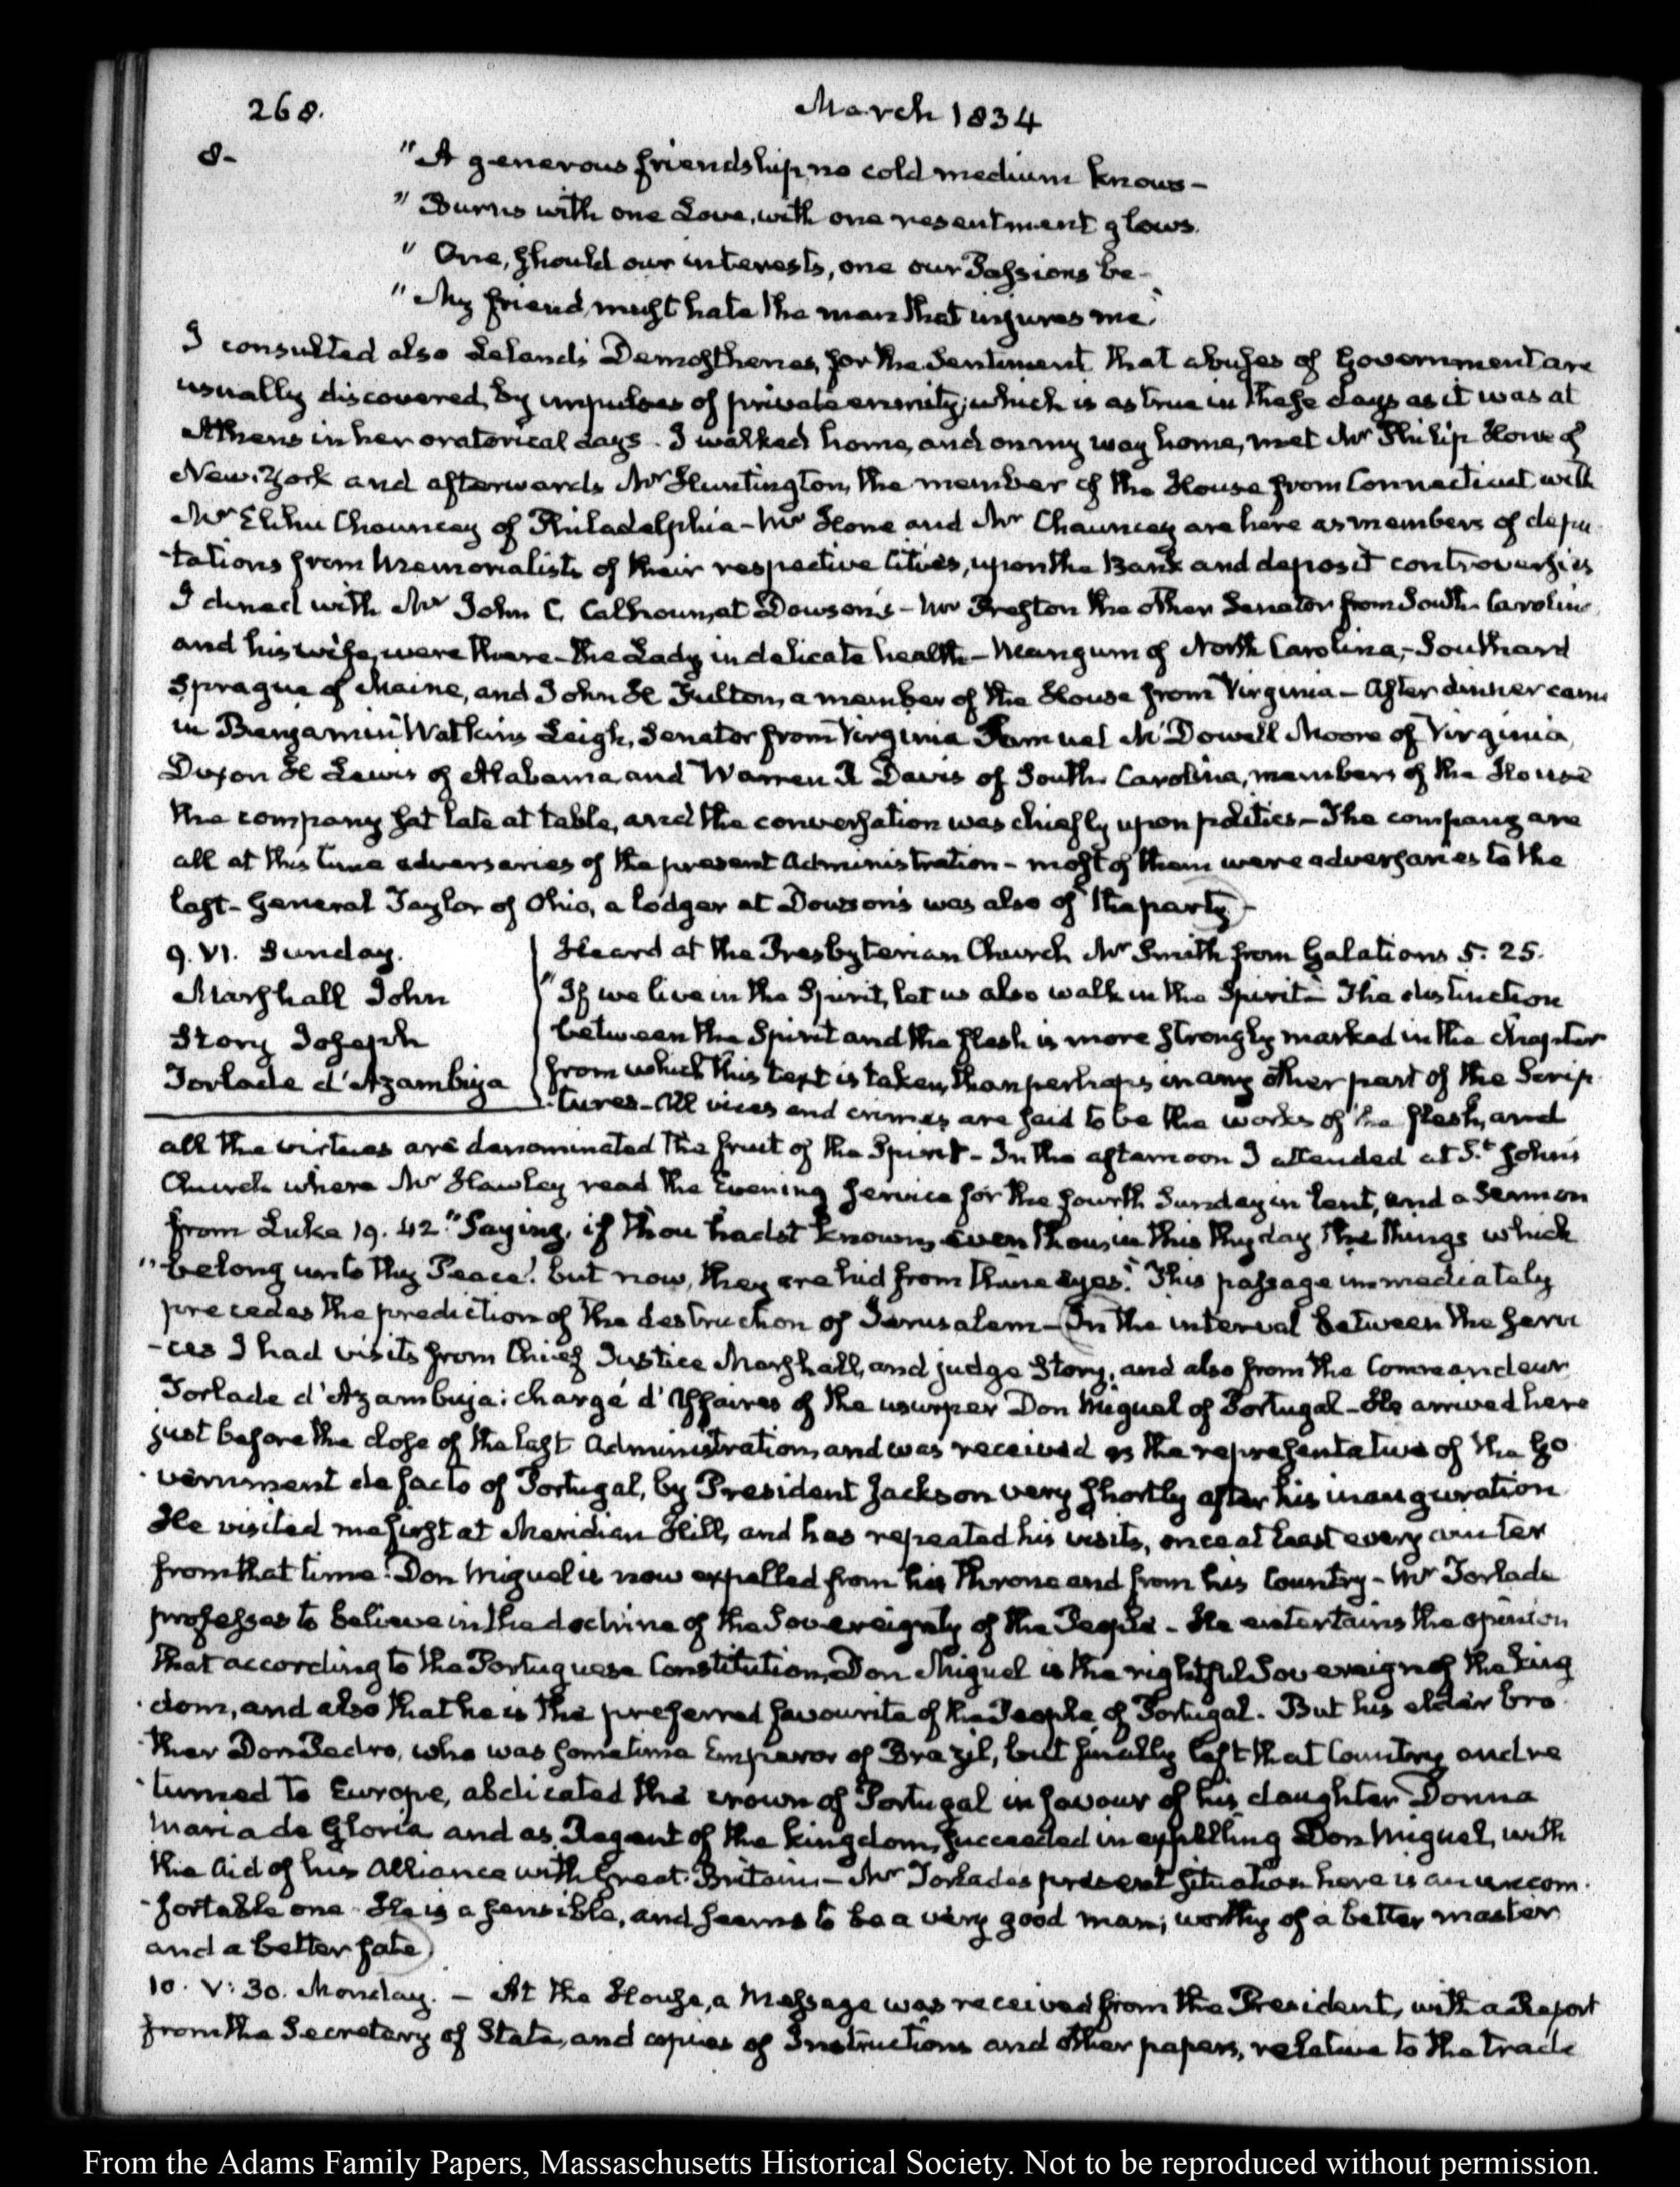 268.
March 1834
8-
"A generous friendship, no cold medium knows-
" Burns with one Love, with one resentment glows.
" One, should our interests, one our Passions be-
" My friend, must hate the man that injures me."
I consulted also Leland's Demosthenes, for the Sentiment that abuses of Government are
usually discovered, by impulses of private enmity; which is as true in these days as it was at
Athens in her oratorical days. I walked home, and on my way home, met Mr Philip Hone of
New-York and afterwards Mr Huntington, the member of the House from Connecticut with
Mr Elihu Chauncey of Philadelphia- Mr Hone and Mr Chauncey are here as members of depu
-tations from Memorialists of their respective Cities, upon the Bank and deposit controversies
I dined with Mr John C. Calhoun, at Dowson's- Mr Preston the other Senator from South Carolina
and his wife, were there- the Lady in delicate health- Mangum of North Carolina,- Southard
Sprague of Maine, and John H Fulton, a member of the House from Virginia- After dinner came
in Benjamin Watkins Leigh, Senator from Virginia Samuel McDowell Moore of Virginia,
Dixon H Lewis of Alabama and Warren R Davis of South Carolina, members of the House
the company sat late at table, and the conversation was chiefly upon politics- The company are
all at this time adversaries of the present Administration- most of them were adversaries to the
last- General Taylor of Ohio, a lodger at Dowson's was also of the party-
9. VI. Sunday.
Marshall John
Story Joseph
Torlade d'Azambuja
Heard at the Presbyterian Church Mr Smith from Galatians 5. 25.
"If we live in the Spirit, let us also walk in the Spirit"- The distinction
between the Spirit and the flesh is more strongly marked in the chapter
from which this text is taken, than perhaps in any other part of the Scrip
-tures- All vices and crimes are said to be the works of the flesh, and
all the virtues are denominated the fruit of the Spirit- In the afternoon I attended at St. John's
Church where Mr Hawley read the Evening service for the fourth Sunday in lent, and a Sermon
from Luke 19. 42. "Saying, if thou hadst known, even thou, in this thy day, the things which
" belong unto thy Peace! but now, they are hid from thine eyes." This passage immediately
precedes the prediction of the destruction of Jerusalem- In the interval between the servi
-ces I had visits from Chief Justice Marshall, and judge Story, and also from the Commandeur
Torlade d'Azambuja: chargé d'Affaires of the usurper Don Miguel of Portugal- He arrived here
just before the close of the last Administration, and was received as the representative of the Go
-vernment de facto of Portugal, by President Jackson very shortly after his inauguration
He visited me first at Meridian Hill, and has repeated his visits, once at least every winter
from that time. Don Miguel is now expelled from his throne and from his Country- Mr Torlade
professes to believe in the doctrine of the Sovereignty of the People- He entertains the opinion
that according to the Portuguese Constitution, Don Miguel is the rightful Sovereign of the King
-dom, and also that he is the preferred favourite of the People of Portugal. But his elder bro
-ther Don Pedro, who was sometime Emperor of Brazil, but finally left that Country and re
-turned to Europe, abdicated the crown of Portugal in favour of his daughter Donna
Maria da Gloria and as Regent of the kingdom, succeeded in expelling Don Miguel, with
the aid of his Alliance with Great-Britain- Mr Torlade's present situation here is an uncom
-fortable one. He is a sensible, and seems to be a very good man; worthy of a better master
and a better fate
10. V: 30. Monday.- At the House, a Message was received from the President, with a Report
from the Secretary of State, and copies of Instructions and other papers, relative to the trade
From the Adams Family Papers, Massachusetts Historical Society. Not to be reproduced without permission.